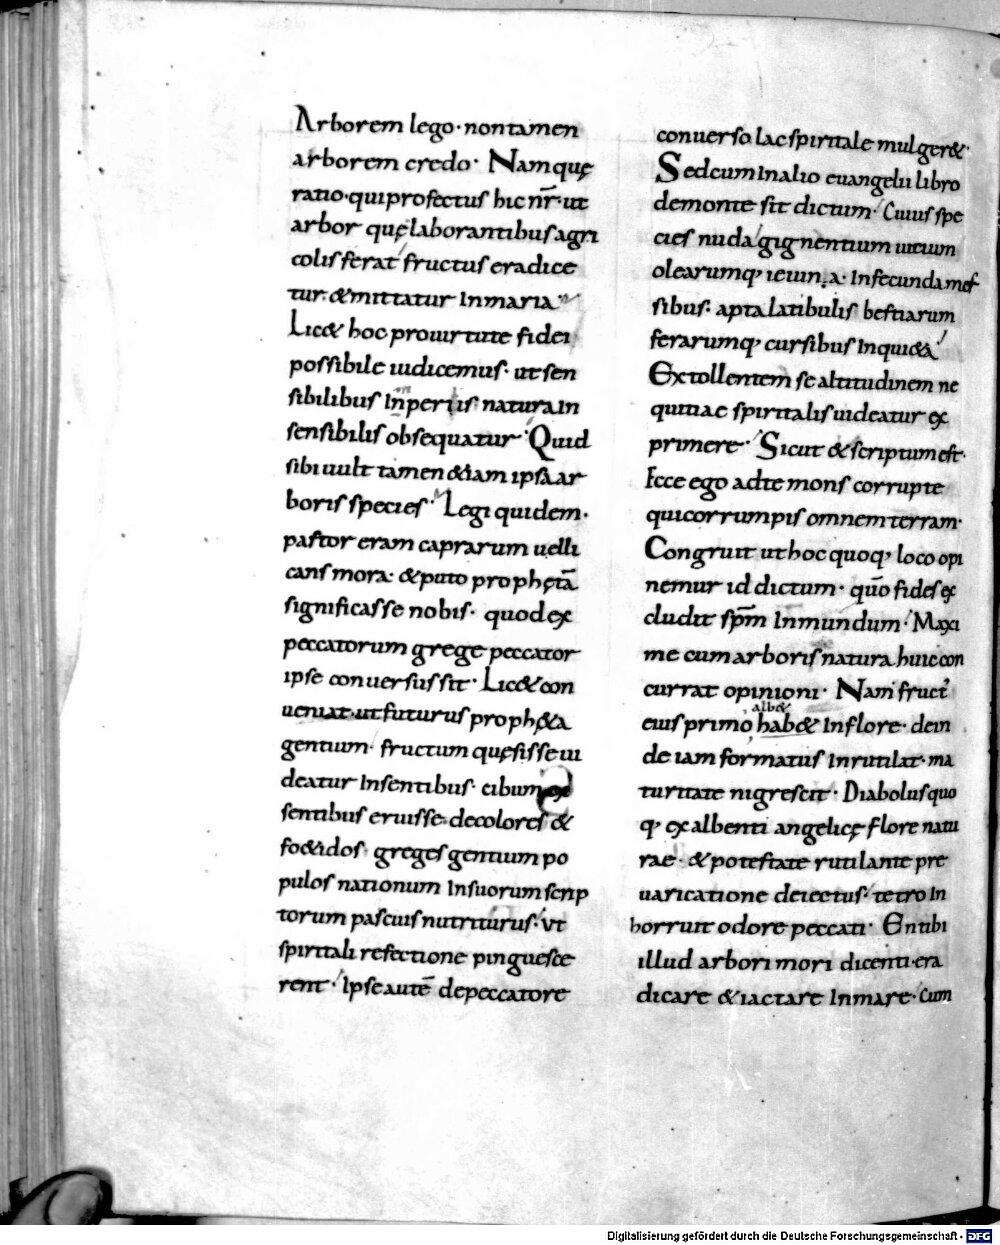 Arborem lego· non tamen
arborem credo· Nam quę
ratio· qui profectus hic nr̄· ut
arbor quę laborantibus agri
colis ferat fructus eradice
tur· & mittatur In maria·
Lic& hoc pro uirtute fidei
possibile iudicemus· ut sen
sibilibus Inperiis natura In
sensibilis obsequatur· Quid
sibi uult tamen &iam ipsa ar
boris species· Legi quidem·
pastor eram caprarum uelli
cans mora· & puto prophętā
significasse nobis· quod ex
peccatorum grege peccator
ipse conuersus sit· Lic& con
ueniat· ut futurus proph&a
gentium· fructum quęsisse ui
deatur In sentibus· cibum ex
sentibus eruisse· decolores &
fo&idos greges gentium po
pulos nationum In suorum scrip
torum pascuis nutriturus· Vt
spiritali refectione pinguesce
rent· Ipse autē de peccatore
conuerso lac spiritale mulger&·
Sed cum In alio euangelii libro
de monte sit dictum· Cuius spe
cies nuda gignentium uitium
olearumq, ieiuna· Infecunda mes
sibus· apta latibulis bestiarum
ferarumq, cursibus Inqui&a
Extollentem se altitudinem ne
quitiae spiritalis uideatur ex
primere· Sicut & scriptum est·
Ecce ego ad te mons corrupte
qui corrumpis omnem terram·
Congruit ut hoc quoq, loco opi
nemur id dictum· quō fides ex
cludit sp̄m Inmundum· Maxi
me cum arboris natura huic con
currat opinioni· Nam fruct
alb&
eius primo hab& In flore· dein
de iam formatus In rutilat· ma
turitate nigrescit· Diabolus quo
q, ex albenti angelicę flore natu
rae· & potestate rutilante pre
uaricatione deiectus· tetro In
horruit odore peccati· En tibi
illud arbori mori dicenti· era
dicare & iactare In mare· Cum
Digitalisierung gefördert durch die Deutsche Forschungsgemeinschaft - DFG